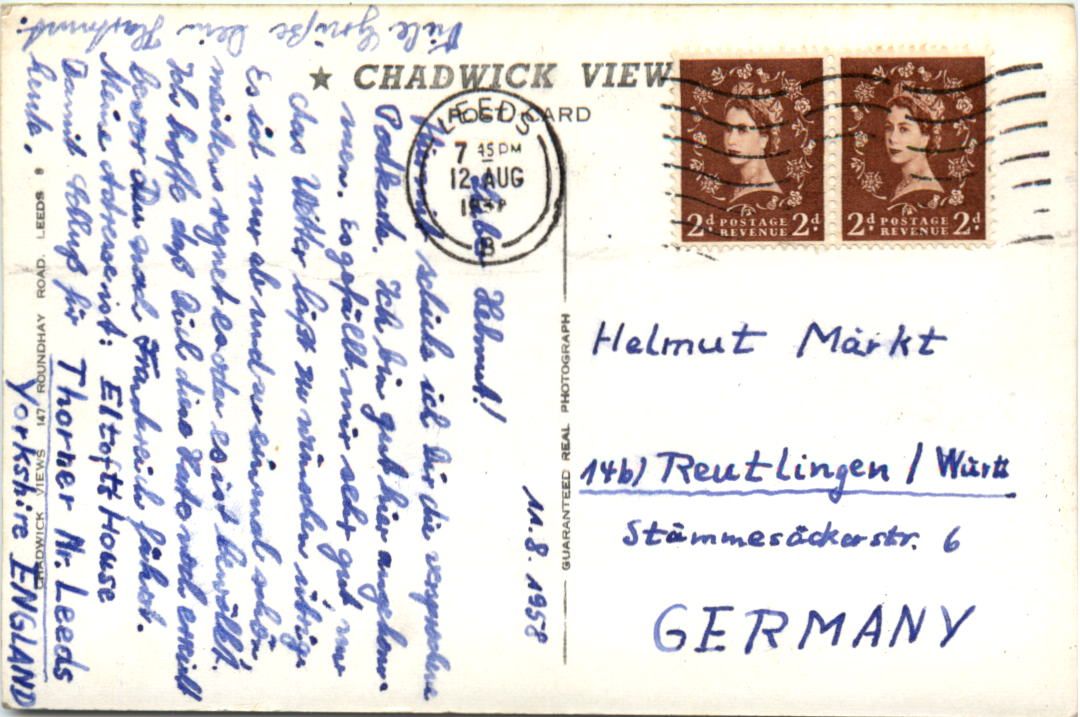 ★ CHADWICK VIEW
POST CARD
LEEDS
7 45 PM
12 AUG
8
2d POSTAGE REVENUE 2d
2d POSTAGE REVENUE 2d
11.8.1958
Lieber Helmut!
Hiermit schicke ich Dir die versprochene
Postkarte. Ich bin gut hier angekom-
men. Es gefällt mir sehr gut nur
das Wetter läßt zu wünschen übrig.
Es ist nur ab und zu einmal schön,
meistens regnet es oder es ist bewölkt.
Ich hoffe daß Dich diese Karte noch erreicht
bevor Du nach Frankreich fährst.
Meine Adresse ist: Eltofts House
Damit Schluß für Thorner Nr. Leeds
heute. Yorkshire ENGLAND
Viele Grüße Dein Hartmut.
CHADWICK VIEWS 147 ROUNDHAY ROAD. LEEDS 8
GUARANTEED REAL PHOTOGRAPH
Helmut Märkt
14b) Reutlingen / Württ
Stämmesäckerstr. 6
GERMANY